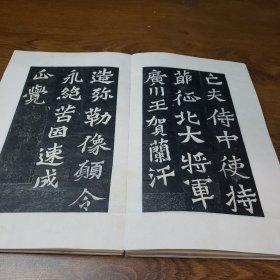 亡夫侍中使持
節征北大將軍
廣川王賀蘭汗
造弥勒像願令
永絕苦因速成
正覺